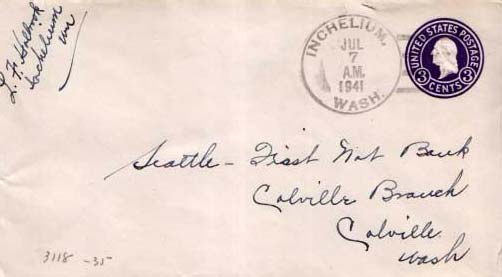 L. F. Holbrook
Inchelium
Wn
INCHELIUM,
JUL
7
A.M.
1941
WASH.
UNITED STATES POSTAGE
3 CENTS 3
Seattle - First Nat Bank
Colville Branch
Colville
Wash
3118 -35